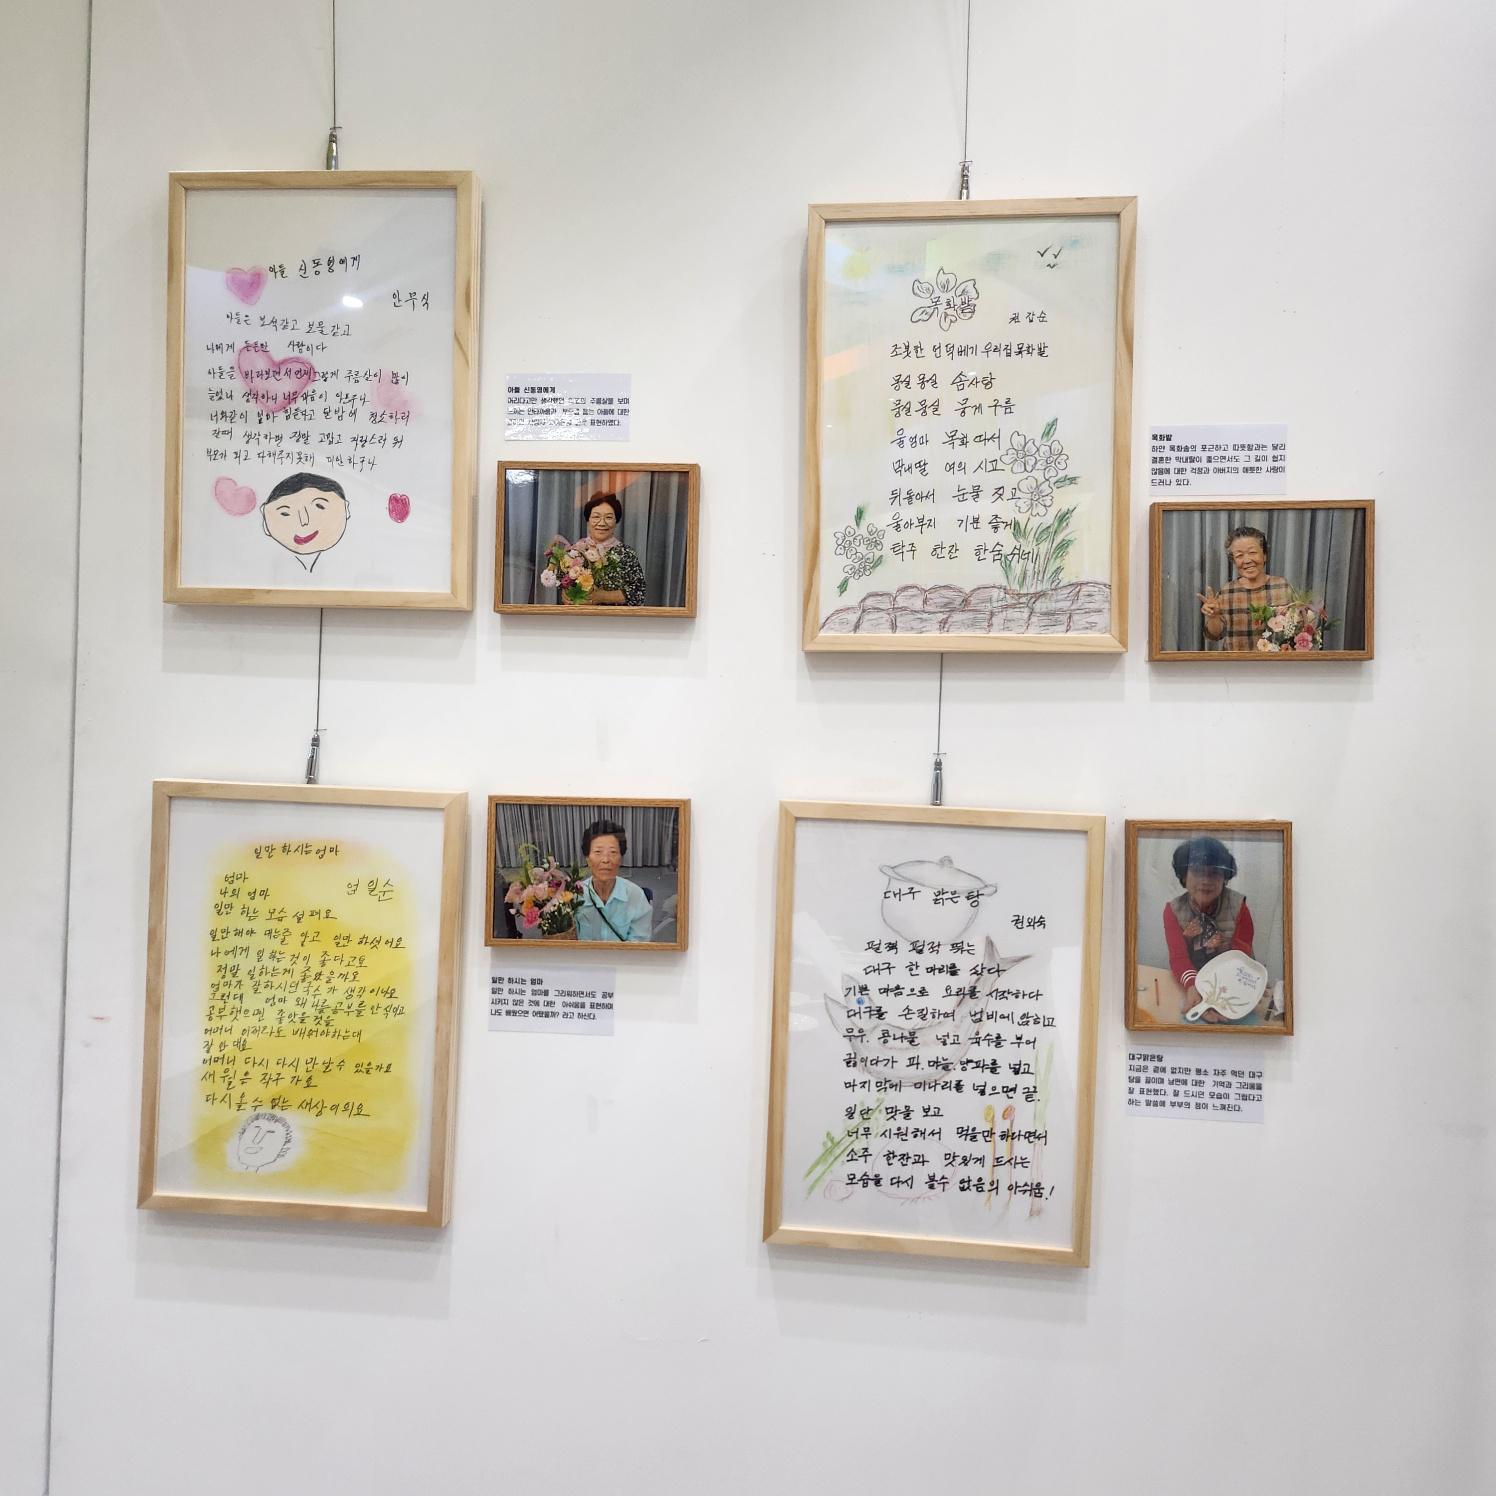 아들 신동영에게
안무식
아들은 보석같고 보물같고
나에게 든든한 사람이다
아들을 바라보면서 언제 그렇게 주름살이 많이
늘었나 생각하니 너무 마음이 안
너와같이 밤에 청소하러
갈때 생각하면 정말 고맙고 자랑스러워
부모가 되고 다해주지못해 미안하구나
아들 신동영에게
어리다고만 생각했던 주름살을 보며
느끼는 안타까움과 아들에 대한
표현하였다.
목화밭
권갑순
조붓한 언덕베기 우리집 목화밭
몽실 몽실 솜사탕
몽실 몽실 뭉게 구름
울엄마 목화 따서
막내딸 여의 시고
뒤돌아서 눈물 짓고
울아부지 기분 좋게
탁주 한잔 한숨 쉬네
목화밭
하얀 목화솜의 포근하고 따뜻함과는 달리
결혼한 막내딸이 좋으면서도 그 길이 쉽지
않음에 대한 걱정과 아버지의 애틋한 사랑이
드러나 있다.
일만 하시는 엄마
엄일순
엄마
나의 엄마
일만 하는 모습
일만해야 되는줄 알고 일만 하셧어요
나에게 일하는것이 좋다고도
정말 일하는게 좋았을까요
엄마가 잘하시던 국수가 생각이나요
그런데 엄마 왜 나를 공부를 안식히고
공부했으면 좋았을것을
어머니 이제라도 배워야하는데
잘 안 대요
어머니 다시 다시 만날수 있을까요
새월은 작구 가요
다시올수 없는 새상이의요
일만 하시는 엄마
일만 하시는 엄마를 그리워하면서도 공부
시키지 않은 것에 대한 아쉬움을 표현하며
나도 배웠으면 어땠을까? 라고 하신다.
대구 맑은 탕
권와숙
펄쩍 펄쩍 뛰는
대구 한 마리를 샀다
기쁜 마음으로 요리를 시작하다
대구를 손질하여 냄비에 앉히고
무우. 콩나물 넣고 육수를 부어
끓이다가 파.마늘.양파를 넣고
마지막에 미나리를 넣으면 끝.
일단 맛을 보고
너무 시원해서 먹을만 하다면서
소주 한잔과 맛있게 드시는
모습을 다시 볼수 없음의 아쉬움.!
대구맑은탕
지금은 곁에 없지만 평소 자주 먹던 대구
탕을 끓이며 남편에 대한 기억과 그리움을
잘 표현했다. 잘 드시던 모습이 그립다고
하는 말씀에 부부의 정이 느껴진다.